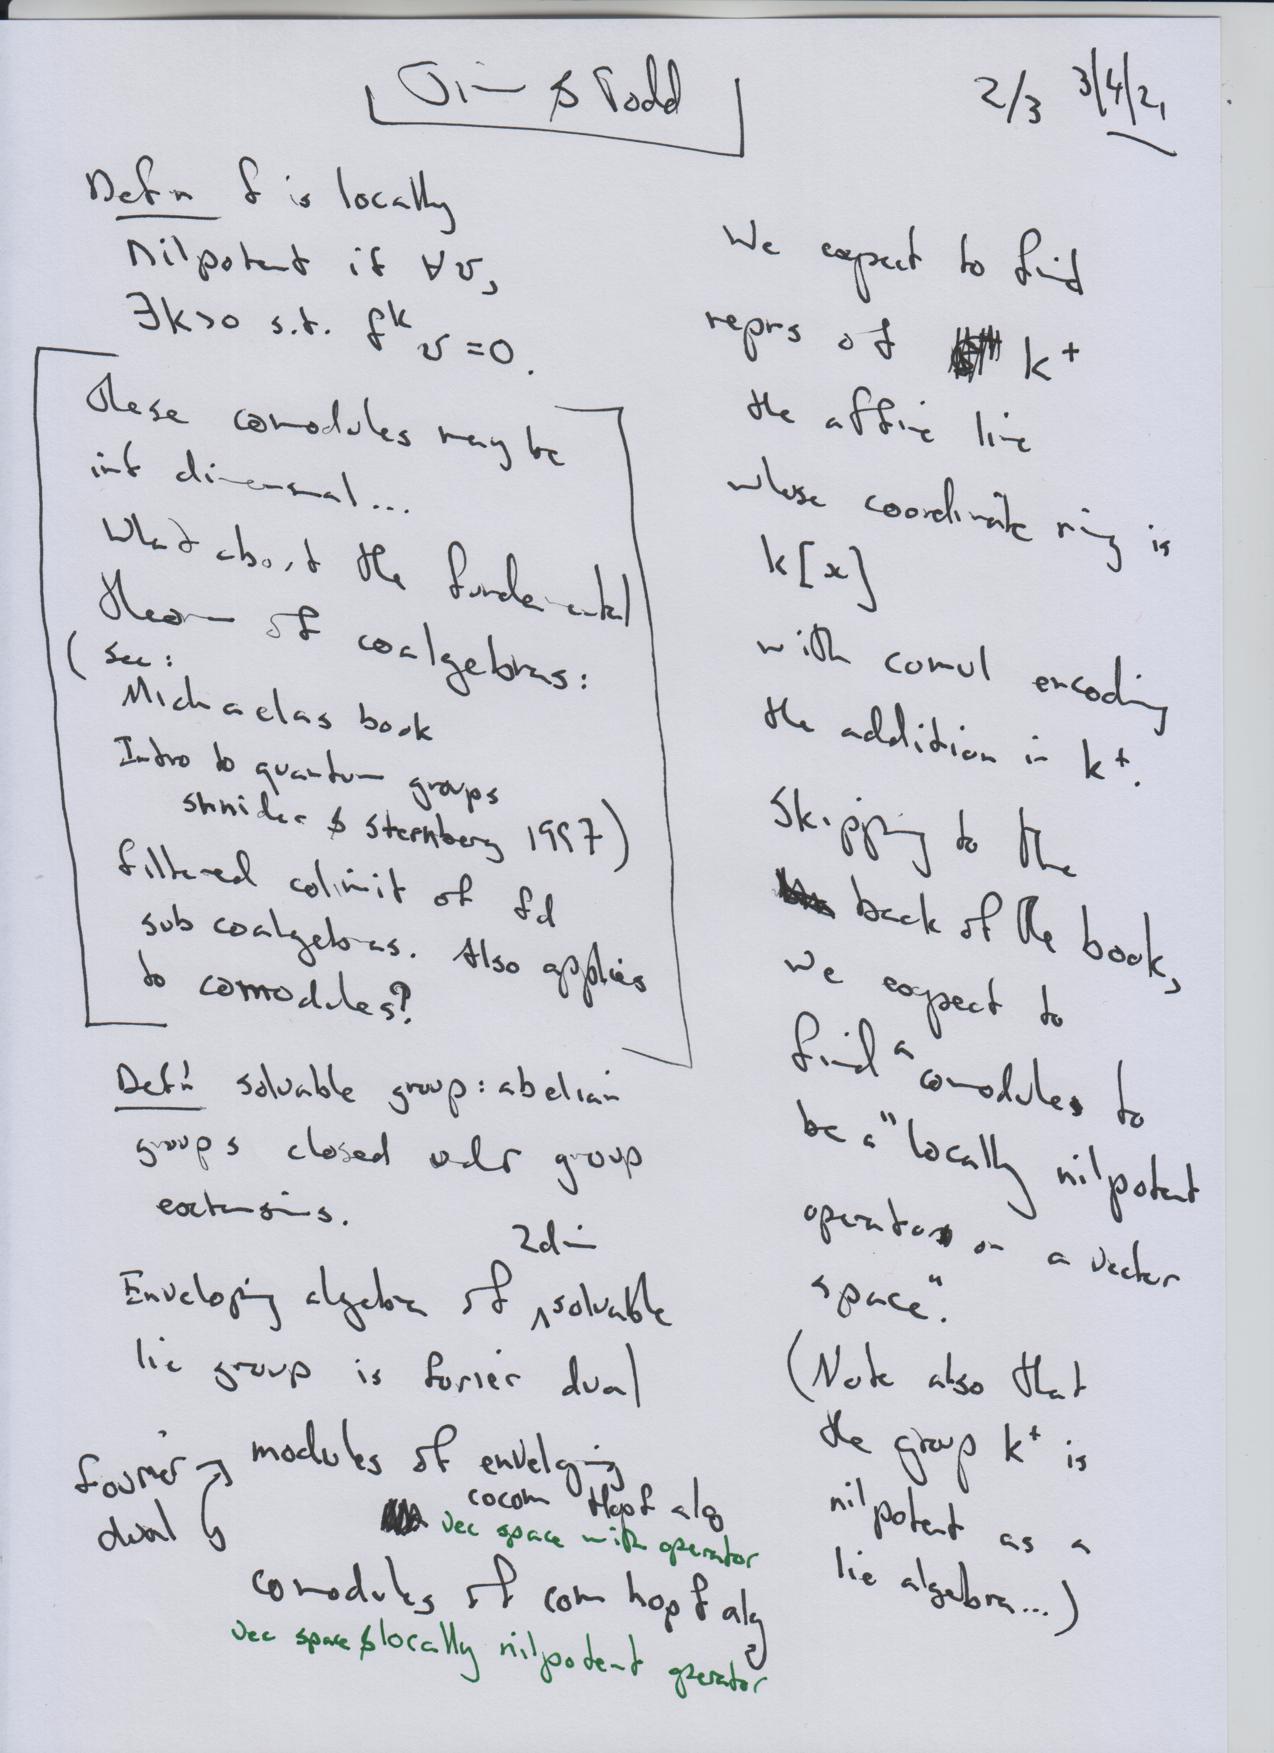 Jim & Todd
2/3 3/4/21
Defn f is locally
nilpotent if ∀v,
∃k>0 s.t. f^k v = 0.
these comodules may be
inf dimensional...
What about the fundamental
theorem of coalgebras:
(see:
Michaelas book
Intro to quantum groups
Shnider & Sternberg 1997)
filtered colimit of fd
sub coalgebras. Also applies
to comodules?
Def'n solvable group: abelian
groups closed under group
extensions.
2dim
Enveloping algebra of ∧ solvable
lie group is forier dual
fourier
dual
modules of enveloping
cocom Hopf alg
vec space with operator
comodules of com hopf alg
vec space & locally nilpotent operator
We expect to find
reprs of k⁺
the affine line
whose coordinate ring is
k[x]
with comul encoding
the addition in k⁺.
Skipping to the
back of the book,
we expect to
find a comodule to
be a "locally nilpotent
operator on a vector
space".
(Note also that
the group k⁺ is
nilpotent as a
lie algebra...)